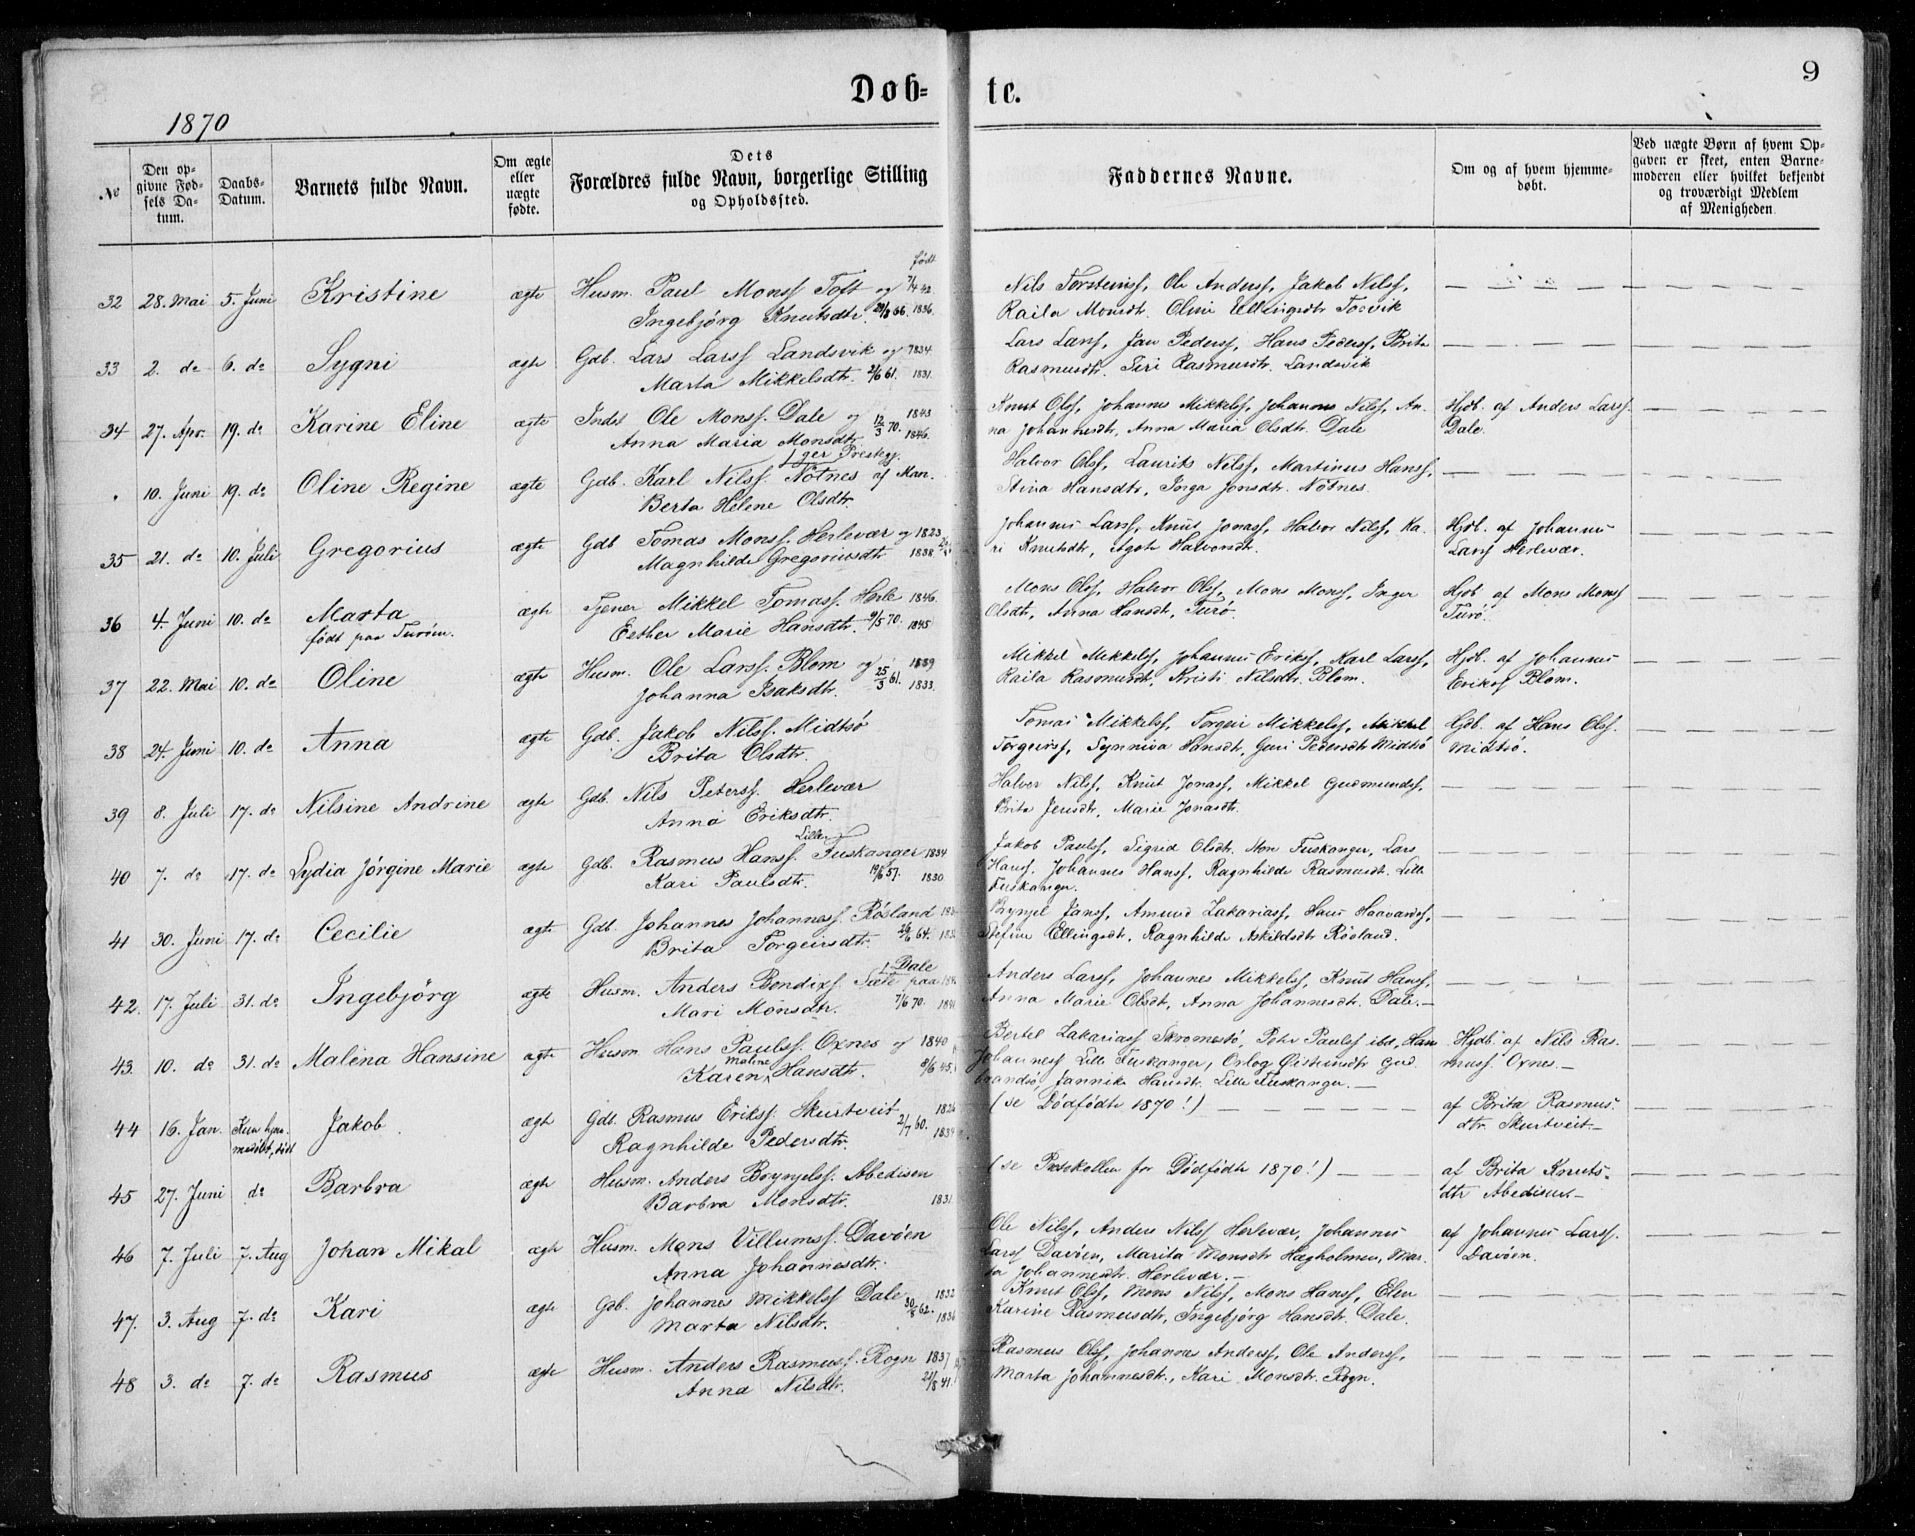 Døb=
te.
9
1870
No
Den op-
givne Fød-
sels Da-
tum.
Daabs-
Datum.
Barnets fulde Navn.
Om ægte
eller
uægte
fødte.
Dets
Forældres fulde Navn, borgerlige Stilling
og Opholdssted.
Faddernes Navne.
Om og af hvem hjemme-
døbt.
Ved uægte Børn af hvem Op-
gaven er skeet, enten Barne-
moderen eller hvilket bekjendt
og troværdigt Medlem
af Menigheden.
født
32 28. Mai 5. Juni Kristine ægte Husm. Paul Monsf Toft og 7/4 42.
Ingebjørg Knutsdtr. 1836.
Nils Torsteinsf, Ole Andersf, Jakob Nilsf,
Raila Monsdtr. Oline Ellingsdtr Tosvik
33 2. do 6. do Sygni ægte Gdb. Lars Larsf Landsvik og 1834.
Marta Mikkelsdtr. 2/6 61. 1831.
Lars Larsf, Jan Pedersf, Hans Pedersf, Brita
Rasmusdtr. Siri Rasmusdtr. Landsvik
34 27. Apr. 19. do Karine Eline ægte Inds. Ole Monsf. Dale og 12/3 70. 1843
Anna Maria Monsdtr 1846.
Knut Olsf, Johannes Mikkelsf, Johannes Nilsf, An-
na Johannesdtr, Anna Maria Olsdtr. Dale
Hjdb. af Anders Larsf.
Dale.
10. Juni 19. do Oline Regine ægte Gdb. Karl Nilsf. Nötnes af Man-
ger Prestegj.
Berta Helene Olsdtr.
Halvor Olsf, Laurits Nilsf, Martinus Hansf,
Stina Hansdtr, Inga Jonsdtr. Nötnes.
35 21. do 10. Juli Gregorius ægte Gdb Tomas Monsf. Herlevær og 1823
Magnhilde Gregoriusdtr. 1838.
Johannes Larsf, Knut Jonasf, Halvor Nilsf, Ka-
ri Knutsdtr, Agate Halvorsdtr.
Hjdb. af Johannes
Larsf Herlevær.
36 4. Juni 10. do Marta ægte Tjener Mikkel Tomasf. Herle 1846.
født paa Turöen.
Esther Marie Hansdtr. 9/5 70. 1845
Mons Olsf, Halvor Olsf, Mons Monsf, Inger
Olsdtr, Anna Hansdtr, Turö.
Hjdb af Mons Monsf
Turö.
37 22. Mai 10. do Oline ægte Husm. Ole Larsf. Blom og 25/3 61. 1839
Johanna Isaksdtr. 1833.
Mikkel Mikkelsf, Johannes Eriksf, Karl Larsf,
Raila Rasmusdtr, Kristi Nilsdtr. Blom.
Hjdb. af Johannes
Eriksf Blom.
38 24. Juni 10. do Anna ægte Gdb. Jakob Nilsf. Midtsö
Brita Olsdtr.
Tomas Mikkelsf, Torgeir Mikkelsf, Mikkel
Torgeirsf, Synniva Hansdtr, Guri Pedersdtr Midtsö
Gdb. af Hans Olsf.
Midtsö.
39 8. Juli 17. do Nilsine Andrine ægte Gdb. Nils Petersf. Herlevær
Anna Eriksdtr.
Halvor Nilsf, Knut Jonasf, Mikkel Gudmundsf,
Brita Jensdtr, Marie Jonasdtr.
40 7. do 17. do Lydia Jörgine Marie ægte Gdb. Rasmus Hansf. Lille Fuskanger 1834
Kari Paulsdtr. 19/6 57. 1830.
Jakob Paulsf, Sigrid Olsdtr. Store Fuskanger, Lars
Hansf, Johannes Hansf, Ragnhilde Rasmusdtr. Lille
Fuskanger.
41 30. Juni 17. do Cecilie ægte Gdb. Johannes Johannesf. Rösland
Brita Torgeirsdtr. 26/6 64.
Brynjel Jansf, Amund Zakariasf, Hans Haavardsf,
Stefine Ellingsdtr, Ragnhilde Askildsdtr Rösland.
42. 17. Juli 31. do Ingebjörg ægte Husm. Anders Bendixf. Sæte paa Dale
Mari Monsdtr. 7/6 70.
Anders Larsf, Johannes Mikkelsf, Knut Hansf,
Anna Marie Olsdtr, Anna Johannesdtr. Dale.
43. 10. do 31. do Malena Hansine ægte Husm Hans Paulsf. Oxnes og 1840
Karen Maline Hansdtr. 8/6 45.
Bertel Zakariasf Skromesö, Peter Paulsf ibd, Hans
Johannesf Lille Fuskanger, Orlog Öisteinsdtr Gud-
brandsö, Jannike Hansdtr. Lille Fuskanger.
Hjdb. af Nils Ras-
musf. Oxnes.
44 16. Jan. Kun hjem-
medöbt, död Jakob. ægte Gdb. Rasmus Eriksf. Skurtveit
Ragnhilde Pedersdtr. 2/7 60. 1834
(se Dødfødte 1870!)
af Brita Rasmus-
dtr. Skurtveit.
45 27. Juni do Barbra ægte Husm. Anders Brynjelsf. Abedisen
Barbra Monsdtr. 1831.
(se Protokollen for Dødfødte 1870!)
af Brita Knuts-
dtr Abedisen
46 7. Juli 7. Aug Johan Mikal ægte Husm. Mons Villumsf. Davöen
Anna Johannesdtr.
Ole Nilsf, Anders Nilsf Herlevær, Johannes
Larsf Davöen, Marita Monsdtr Hægholmen, Mar-
ta Johannesdtr. Herlevær.
af Johannes Larsf.
Davöen.
47. 3. Aug 7. do Kari ægte Gdb. Johannes Mikkelsf Dale 1832
Marta Nilsdtr. 1836
Knut Olsf, Mons Nilsf, Mons Hansf, Elen
Karine Rasmusdtr, Ingebjörg Hansdtr. Dale.
48 3. do 7. do Rasmus ægte Husm. Anders Rasmusf. Rogn 1837
Anna Nilsdtr. 21/8 41.
Rasmus Olsf, Johannes Andersf, Ole Andersf,
Marta Johannesdtr., Kari Monsdtr. Rogn.